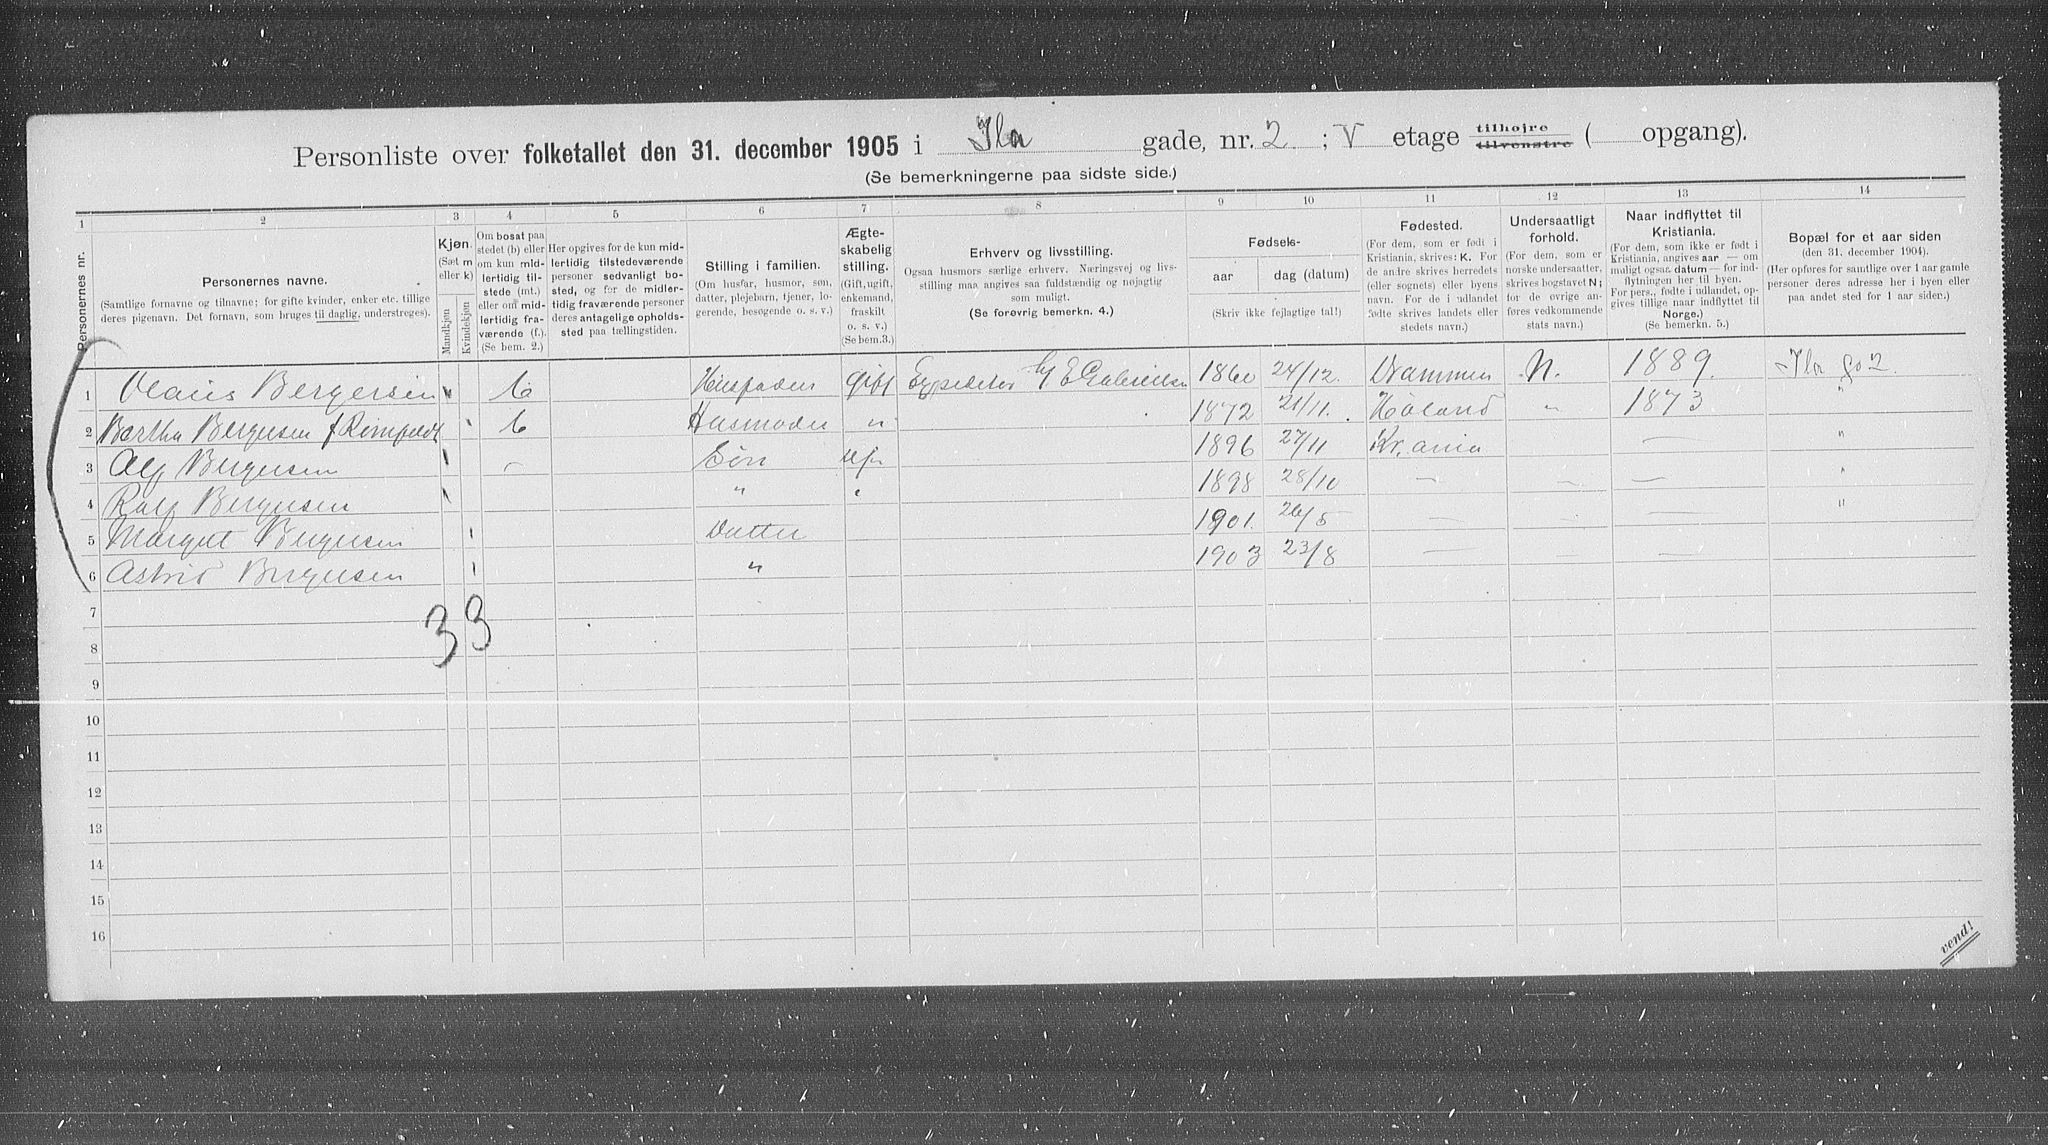 Personliste over folketallet den 31. december 1905 i Ila gade, nr. 2 ; V etage tilhøjre tilvenstre ( opgang).
(Se bemerkningerne paa sidste side.)
1 2 3 4 5 6 7 8 9 10 11 12 13 14
Personernes nr.
Personernes navne.
(Samtlige fornavne og tilnavne; for gifte kvinder, enker etc. tillige
deres pigenavn. Det fornavn, som bruges til daglig, understreges).
Kjøn.
(Sæt m
eller k)
Mandkjøn
Kvindekjøn
Om bosat paa
stedet (b) eller
om kun mid-
lertidig til-
stede (mt.)
eller om mid-
lertidig fra-
værende (f.).
(Se bem. 2.)
Her opgives for de kun mid-
lertidig tilstedeværende
personer sedvanligt bo-
sted, og for de midler-
tidig fraværende personer
deres antagelige opholds-
sted paa tællingstiden.
Stilling i familien.
(Om husfar, husmor, søn,
datter, plejebarn, tjener, lo-
gerende, besøgende o. s. v.)
Ægte-
skabelig
stilling.
(Gift, ugift,
enkemand,
fraskilt
o. s. v.)
(Se bem.3.)
Erhverv og livsstilling.
Ogsaa husmors særlige erhverv. Næringsvej og livs-
stilling maa angives saa fuldstændig og nøjagtig
som muligt.
(Se forøvrig bemerkn. 4.)
Fødsels-
aar
dag (datum)
(Skriv ikke fejlagtige tal!)
Fødested.
(For dem, som er født i
Kristiania, skrives: K. For
de andre skrives herredets
(eller sognets) eller byens
navn. For de i udlandet
fødte skrives landets eller
stedets navn.)
Undersaatligt
forhold.
(For dem, som er
norske undersaatter,
skrives bogstavet N;
for de øvrige an-
føres vedkommende
stats navn.)
Naar indflyttet til
Kristiania.
(For dem, som ikke er født i
Kristiania, angives aar — om
muligt ogsaa datum — for ind-
flytningen her til byen.
For pers., fødte i udlandet, op-
gives tillige naar indflyttet til
Norge.)
(Se bemerkn. 5.)
Bopæl for et aar siden
(den 31. december 1904).
(Her opføres for samtlige over 1 aar gamle
personer deres adresse her i byen eller
paa andet sted for 1 aar siden.)
1 Bergersen b Husfader gift Expeditør 1860 24/12. Drammen N. 1889. Ila g. 2.
2 Bertha Bergersen f b Husmoder " 1872 21/11. Høland " 1873 "
3 Alf Bergersen – Søn ug. 1896 27/11 Kr.ania — "
4 Rolf Bergersen " " 1898 28/10 — — — "
5 Margit Bergersen Datter 1901. 26/5 — — — "
6 Astrid Bergersen " 1903 23/8 — — —
7
3 3
8
9
10
11
12
13
14
15
16
vend!